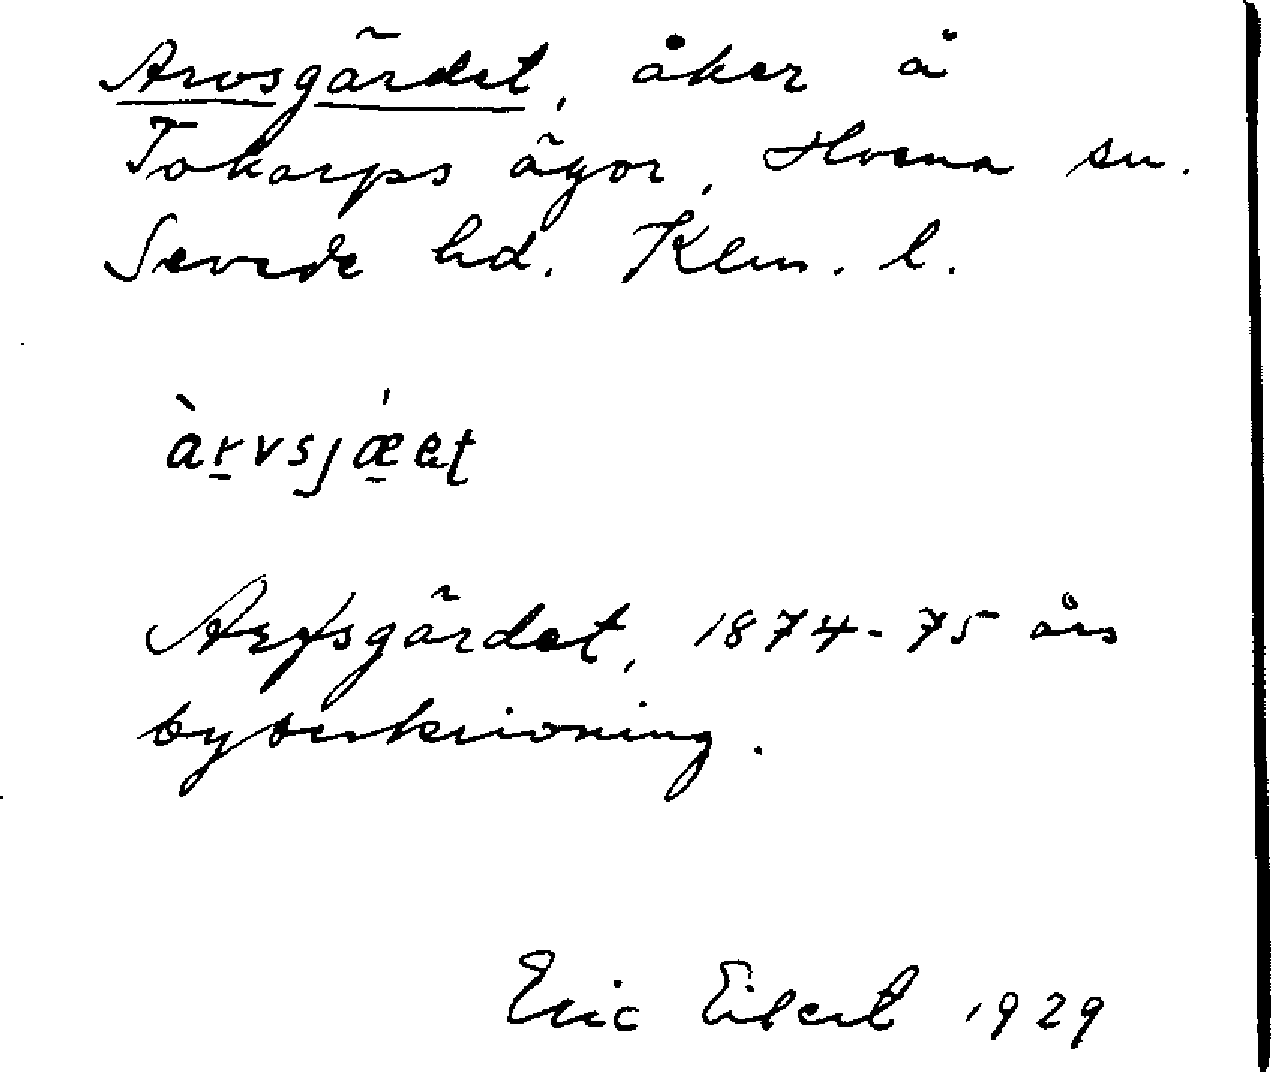 Arvsgärdet, åker å
Tokarps ägor, Hvena sn.
Sevede hd. Klm. l.
àrvsjæ̀et
Arfsgärdet, 1874-75 års
bybeskrivning.
Eric Elbert 1929